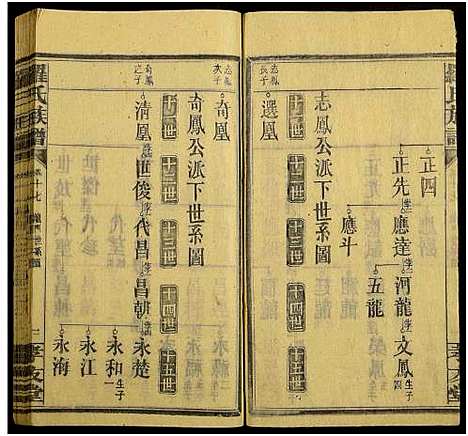 羅氏族譜
正四
正先 應達 河龍 文鳳 生子四
五龍
應斗
志鳳公派下世系圖
十一世 十二世 十三世 十四世 十五世
志鳳長子
選凰
志鳳次子
奇凰
奇鳳公派下世系圖
十一世 十二世 十三世 十四世 十五世
奇鳳之子
清凰 世俊 代昌 昌朝 永楚
永和 生子一
永江
永海
羅氏族譜
孝友堂